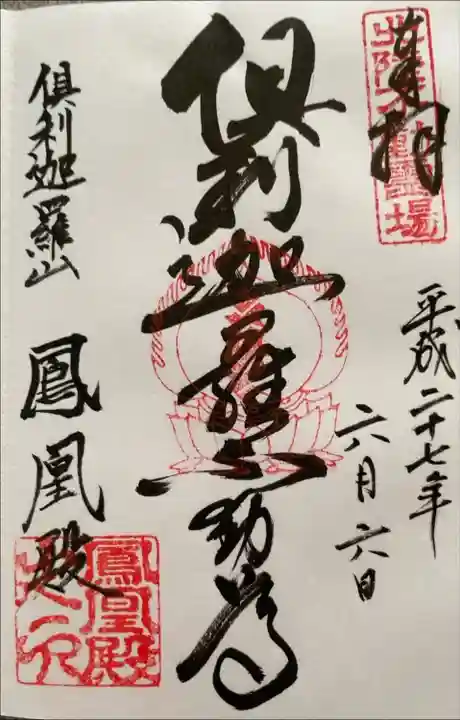 奉拝
北陸不動霊場
平成二十七年
六月六日
倶利迦羅不動尊
倶利迦羅山
鳳凰殿
鳳凰殿